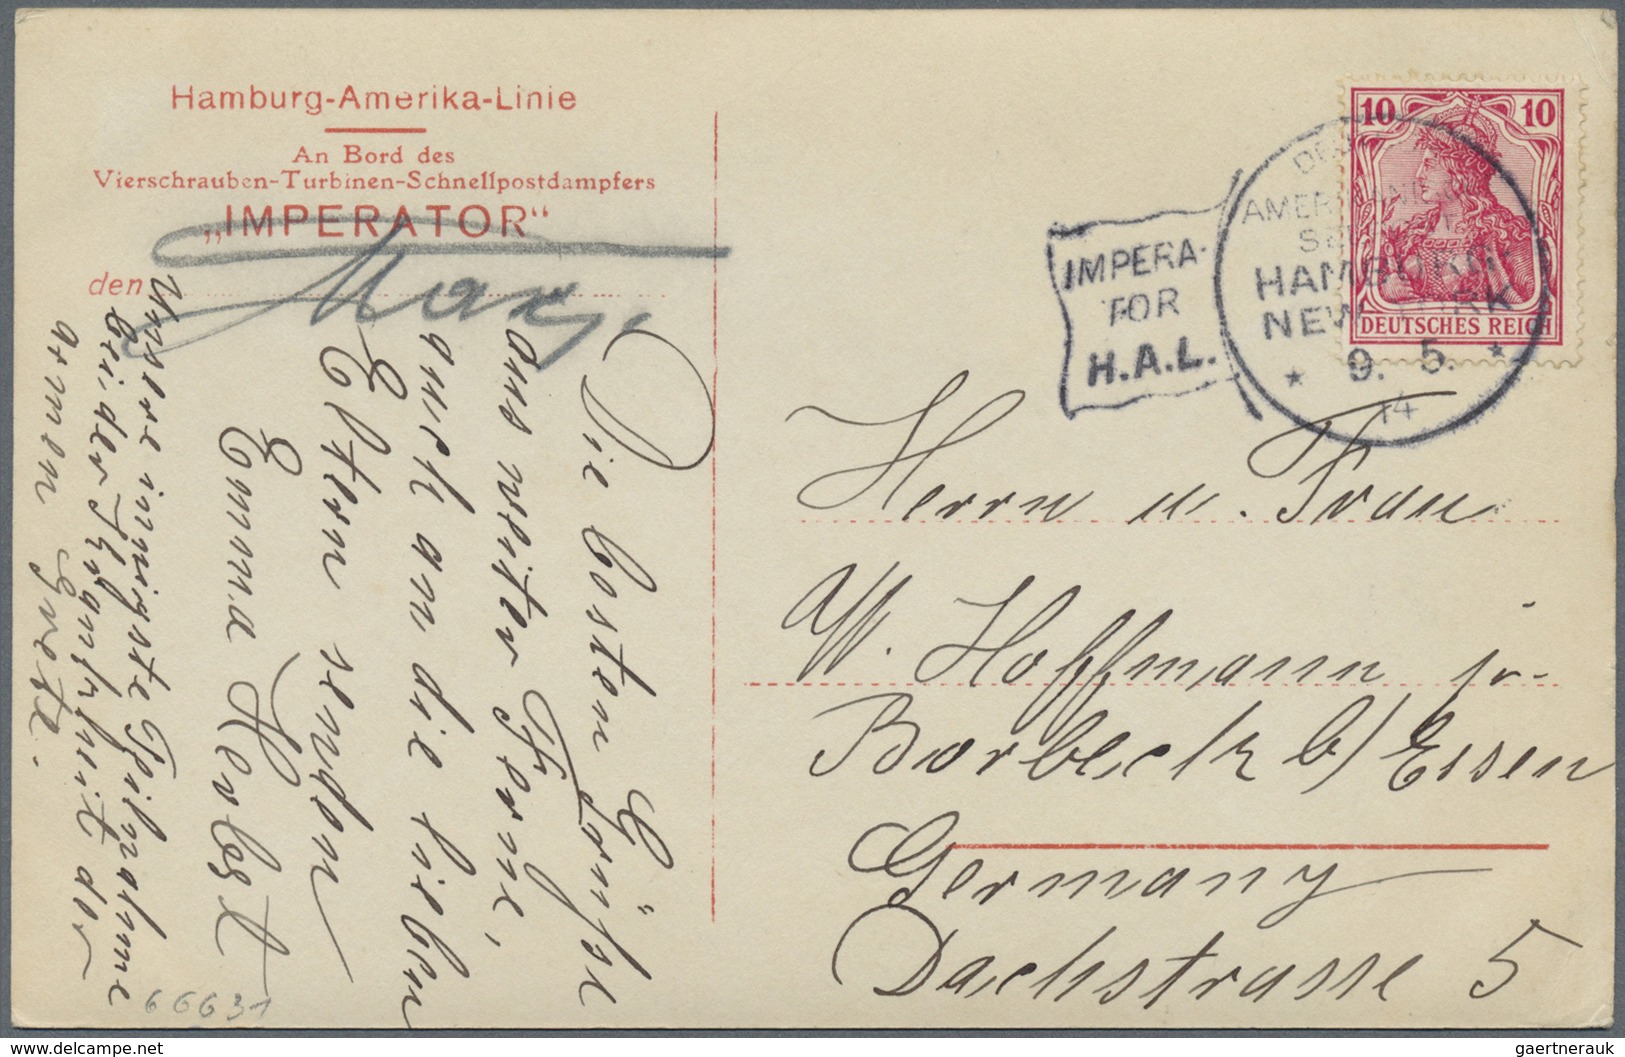 Hamburg-Amerika-Linie
An Bord des
Vierschrauben-Turbinen-Schnellpostdampfers
„IMPERATOR"
den
Die besten Grüße
aus weiter Ferne,
auch an die lieben
Eltern senden
Emma Herbst
Unsere innigste Teilnahme
bei der Krankheit der
armen Grete.
66631
10 10
DEUTSCHES REICH
IMPERA-
TOR
H.A.L.
HAMBURG
NEW YORK
* 9. 5. *
14
Herrn u. Frau
W. Hoffmann jr.
Borbeck b/ Essen
Germany
Dachstrasse 5
www.delcampe.net
gaertnerauk